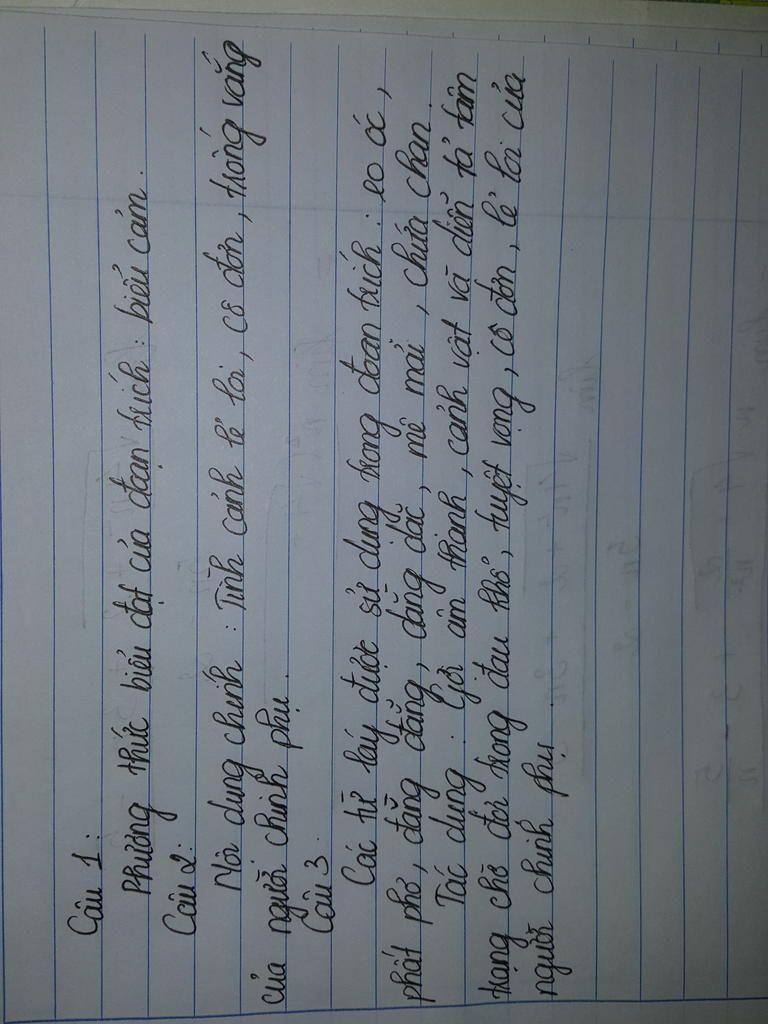 Câu 1:
Phương thức biểu đạt của đoạn trích: biểu cảm.
Câu 2:
Nội dung chính: Tình cảnh lẻ loi, cô đơn, trống vắng
của người chinh phụ.
Câu 3:
Các từ láy được sử dụng trong đoạn trích: eo óc,
phất phơ, đằng đẵng, dằng dặc, mê mải, chứa chan.
Tác dụng: Gợi âm thanh, cảnh vật và diễn tả tâm
trạng chờ đợi trong đau khổ, tuyệt vọng, cô đơn, lẻ loi của
người chinh phụ.